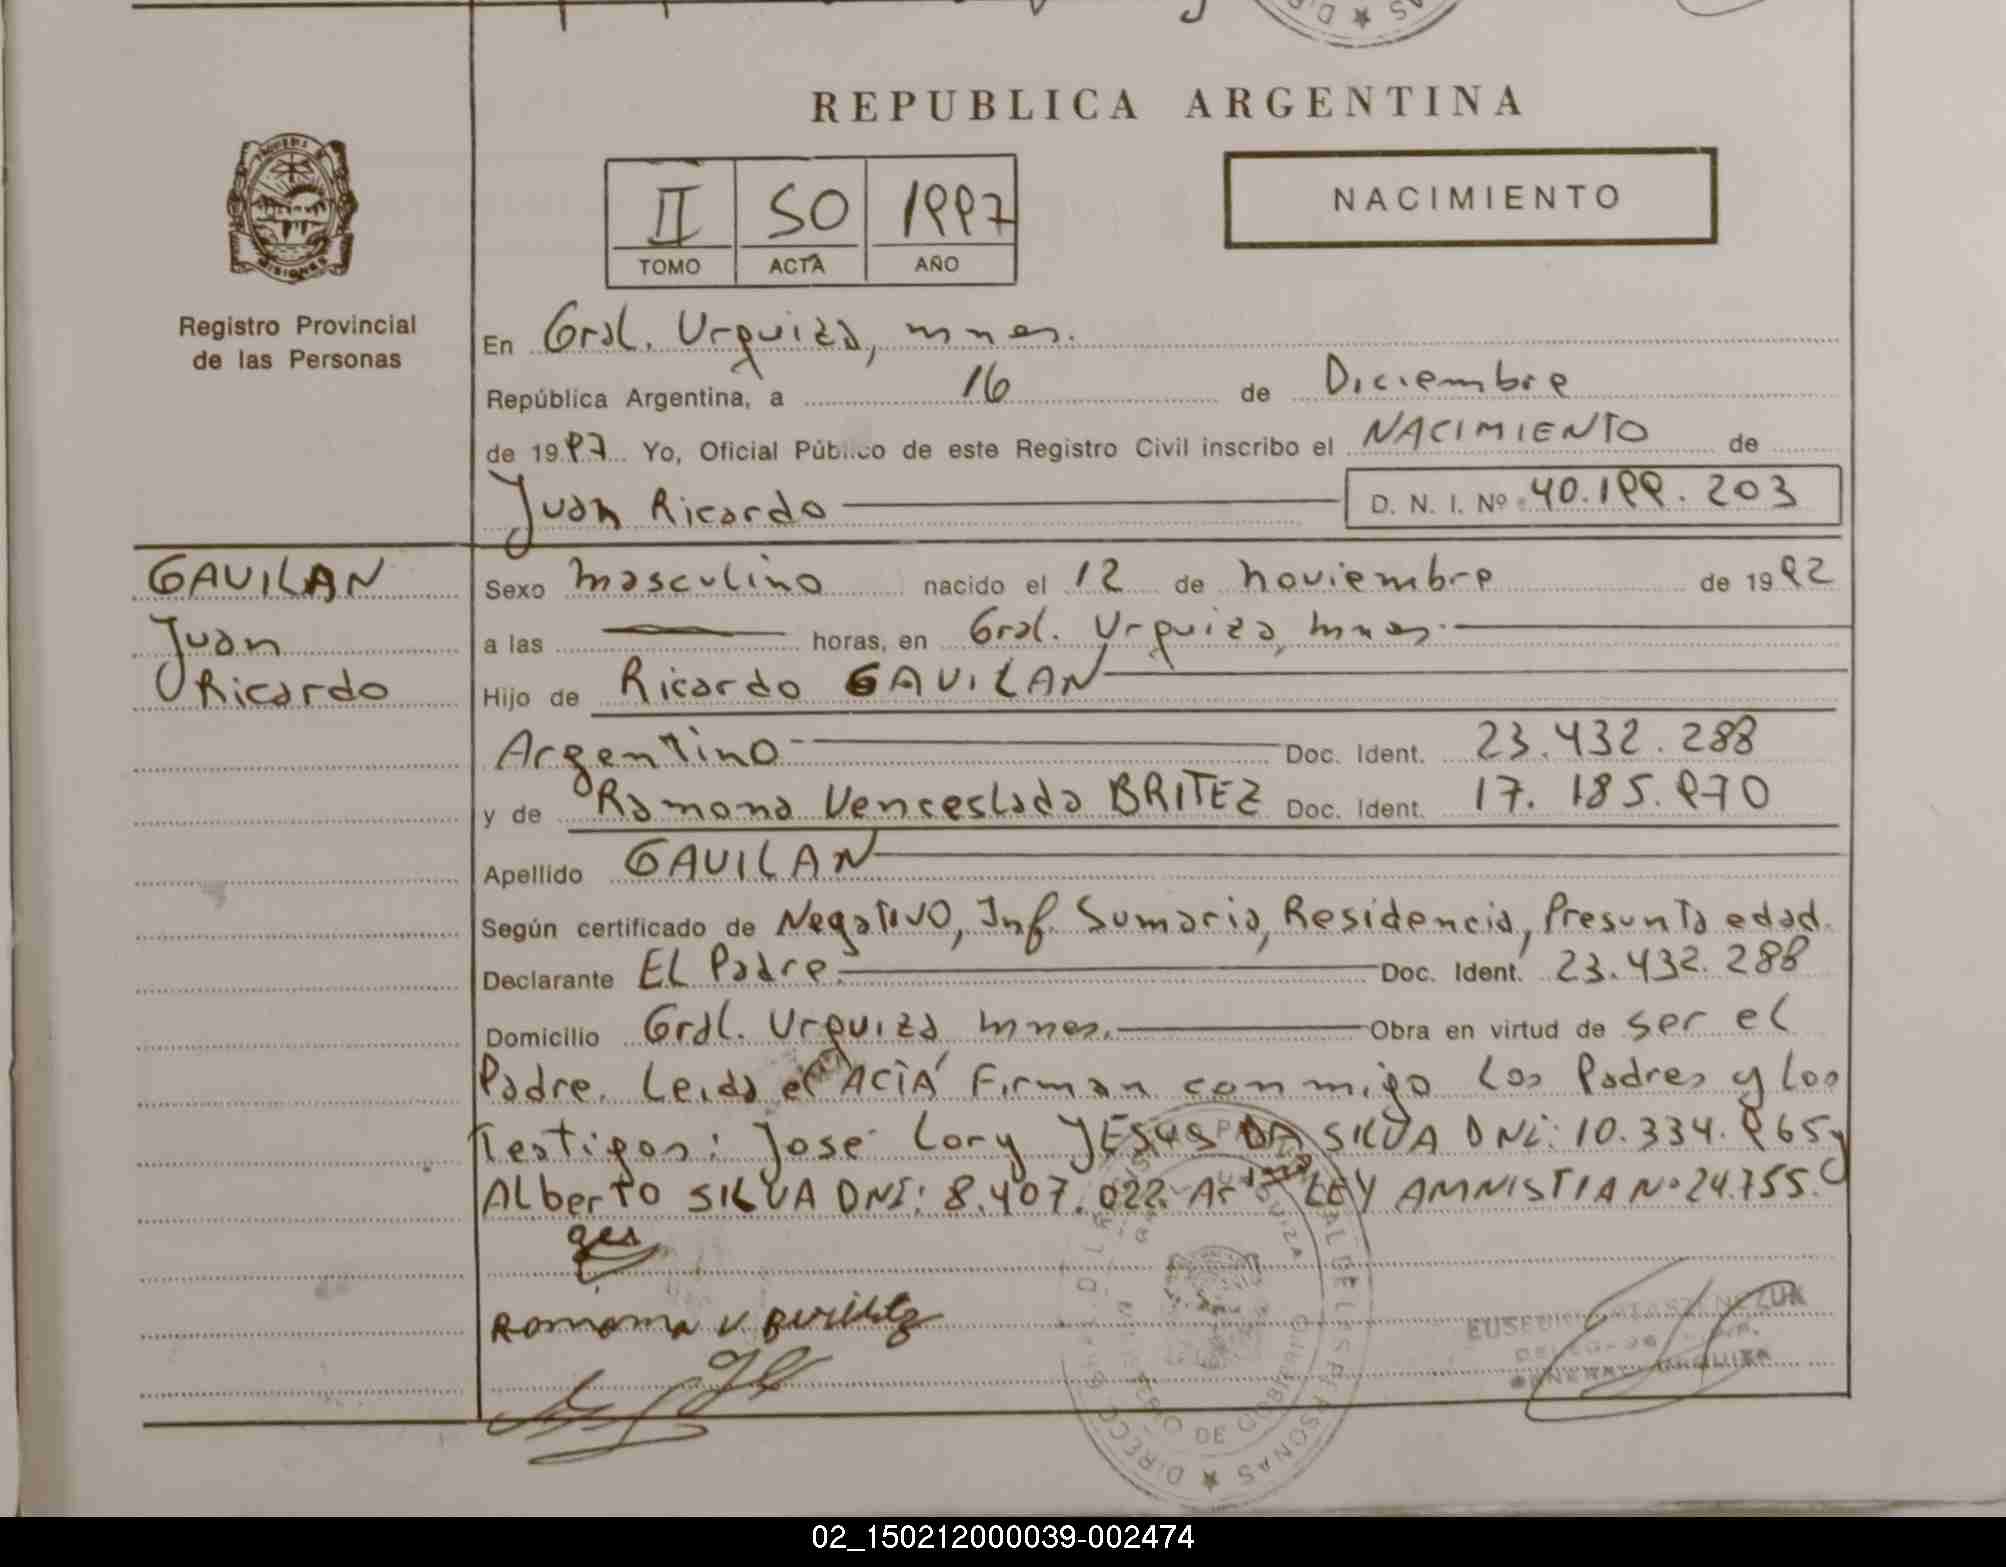 REPUBLICA ARGENTINA
II 50 1997
TOMO ACTA AÑO
NACIMIENTO
MISIONES
Registro Provincial
de las Personas
En Gral. Urquiza, mnes.
República Argentina, a 16 de Diciembre
de 1997 Yo, Oficial Público de este Registro Civil inscribo el NACIMIENTO de
Juan Ricardo D. N. I. Nº 40.199.203
GAVILAN
Juan
Ricardo
Sexo masculino nacido el 12 de noviembre de 1992
a las horas, en Gral. Urquiza, mnes.
Hijo de Ricardo GAVILAN
Argentino Doc. Ident. 23.432.288
y de Ramona Venceslada BRITEZ Doc. Ident. 17.185.970
Apellido GAVILAN
Según certificado de Negativo, Inf. Sumaria, Residencia, Presunta edad.
Declarante El Padre. Doc. Ident. 23.432.288
Domicilio Gral. Urquiza mnes. Obra en virtud de ser el
Padre. Leida el ACTA Firman conmigo los Padres y los
Testigos: José Lory JESUS DA SILVA DNI: 10.334.965 y
Alberto SILVA DNI: 8.407.022. Ar LEY AMNISTIA Nº 24.755.
Ramona V
GENERAL URQUIZA
MINISTERIO DE GOBIERNO
02_150212000039-002474